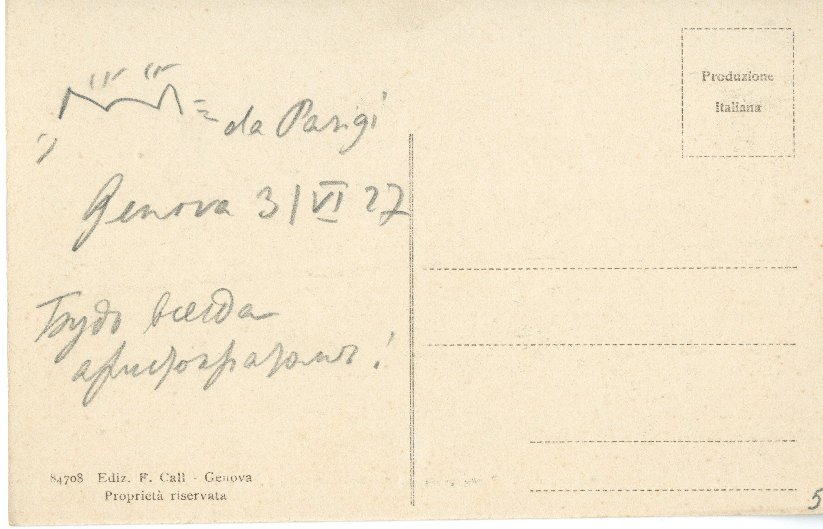 da Parigi
Genova 3/VI 27
Будь всегда
аристократомъ!
Produzione
Italiana
84708 Ediz. F. Call - Genova
Proprietà riservata
5